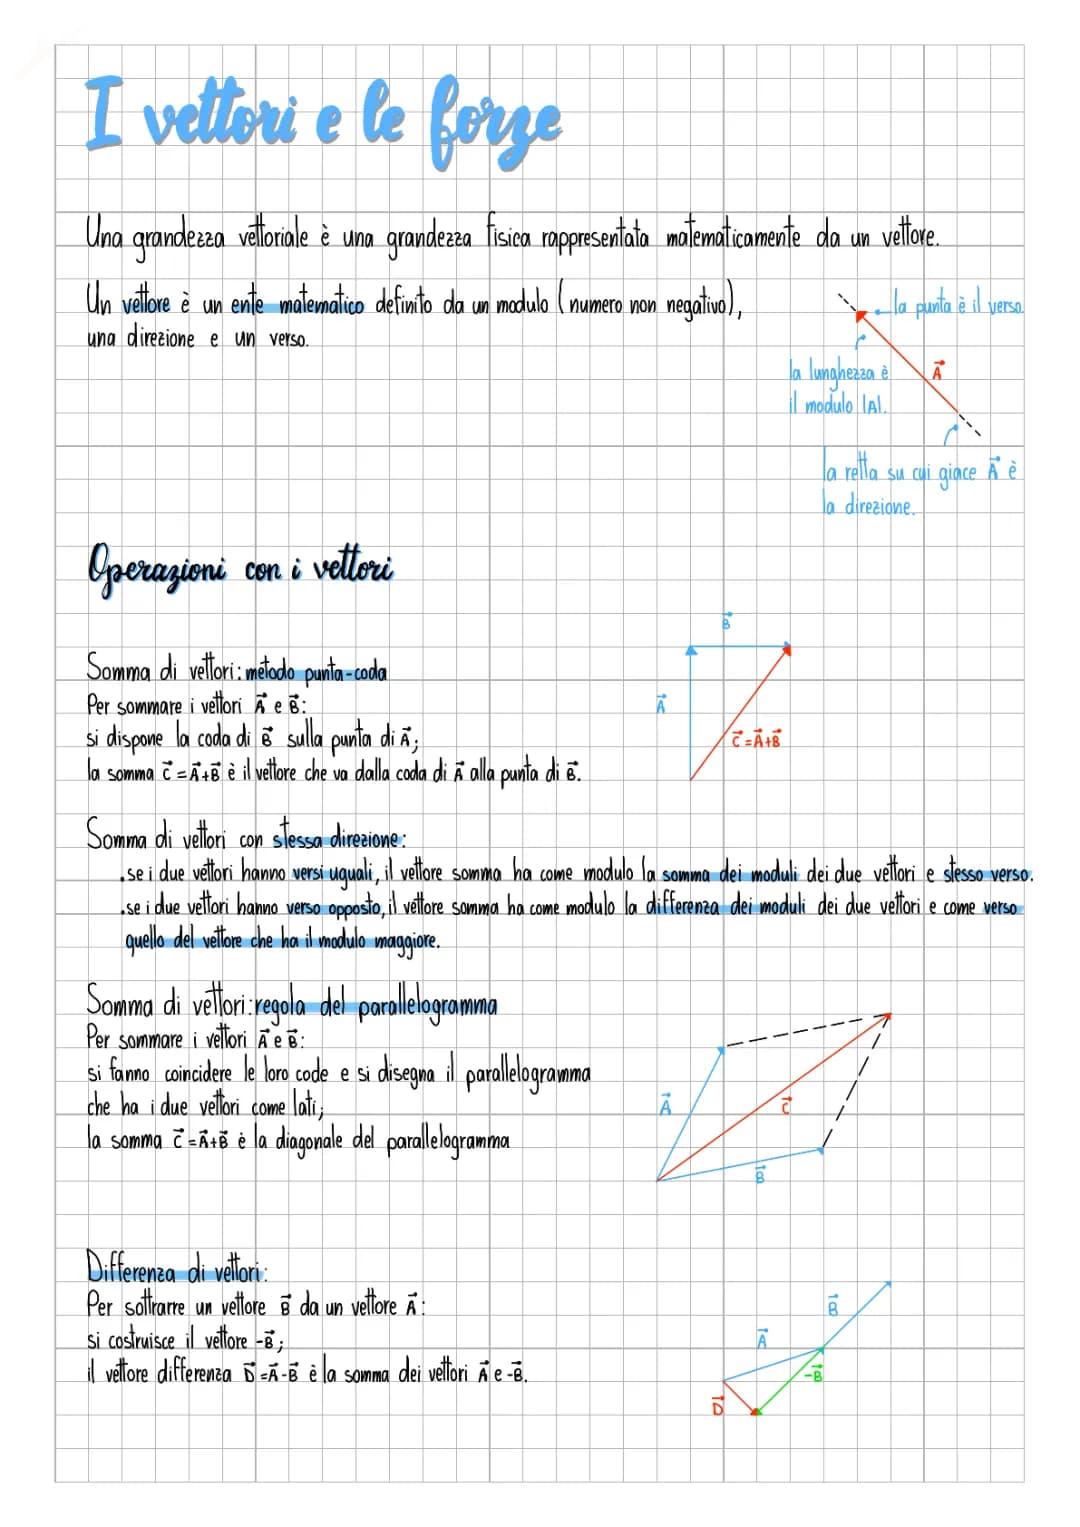 I vettori e le forze
Una grandezza vettoriale è una grandezza fisica rappresentata matematicamente da un vettore.
Un vettore è un ente matematico definito da un modulo (numero non negativo),
una direzione e un verso.
la punta è il verso.
la lunghezza è
il modulo |A|.
A⃗
la retta su cui giace A⃗ è
la direzione.
Operazioni con i vettori
Somma di vettori: metodo punta-coda
Per sommare i vettori A⃗ e B⃗:
si dispone la coda di B⃗ sulla punta di A⃗;
la somma C⃗=A⃗+B⃗ è il vettore che va dalla coda di A⃗ alla punta di B⃗.
B⃗
A⃗
C⃗=A⃗+B⃗
Somma di vettori con stessa direzione:
.se i due vettori hanno versi uguali, il vettore somma ha come modulo la somma dei moduli dei due vettori e stesso verso.
.se i due vettori hanno verso opposto, il vettore somma ha come modulo la differenza dei moduli dei due vettori e come verso
quello del vettore che ha il modulo maggiore.
Somma di vettori: regola del parallelogramma
Per sommare i vettori A⃗ e B⃗:
si fanno coincidere le loro code e si disegna il parallelogramma
che ha i due vettori come lati;
la somma C⃗=A⃗+B⃗ è la diagonale del parallelogramma
A⃗
C⃗
B⃗
Differenza di vettori:
Per sottrarre un vettore B⃗ da un vettore A⃗:
si costruisce il vettore -B⃗;
il vettore differenza D⃗=A⃗-B⃗ è la somma dei vettori A⃗ e -B⃗.
B⃗
A⃗
-B⃗
D⃗